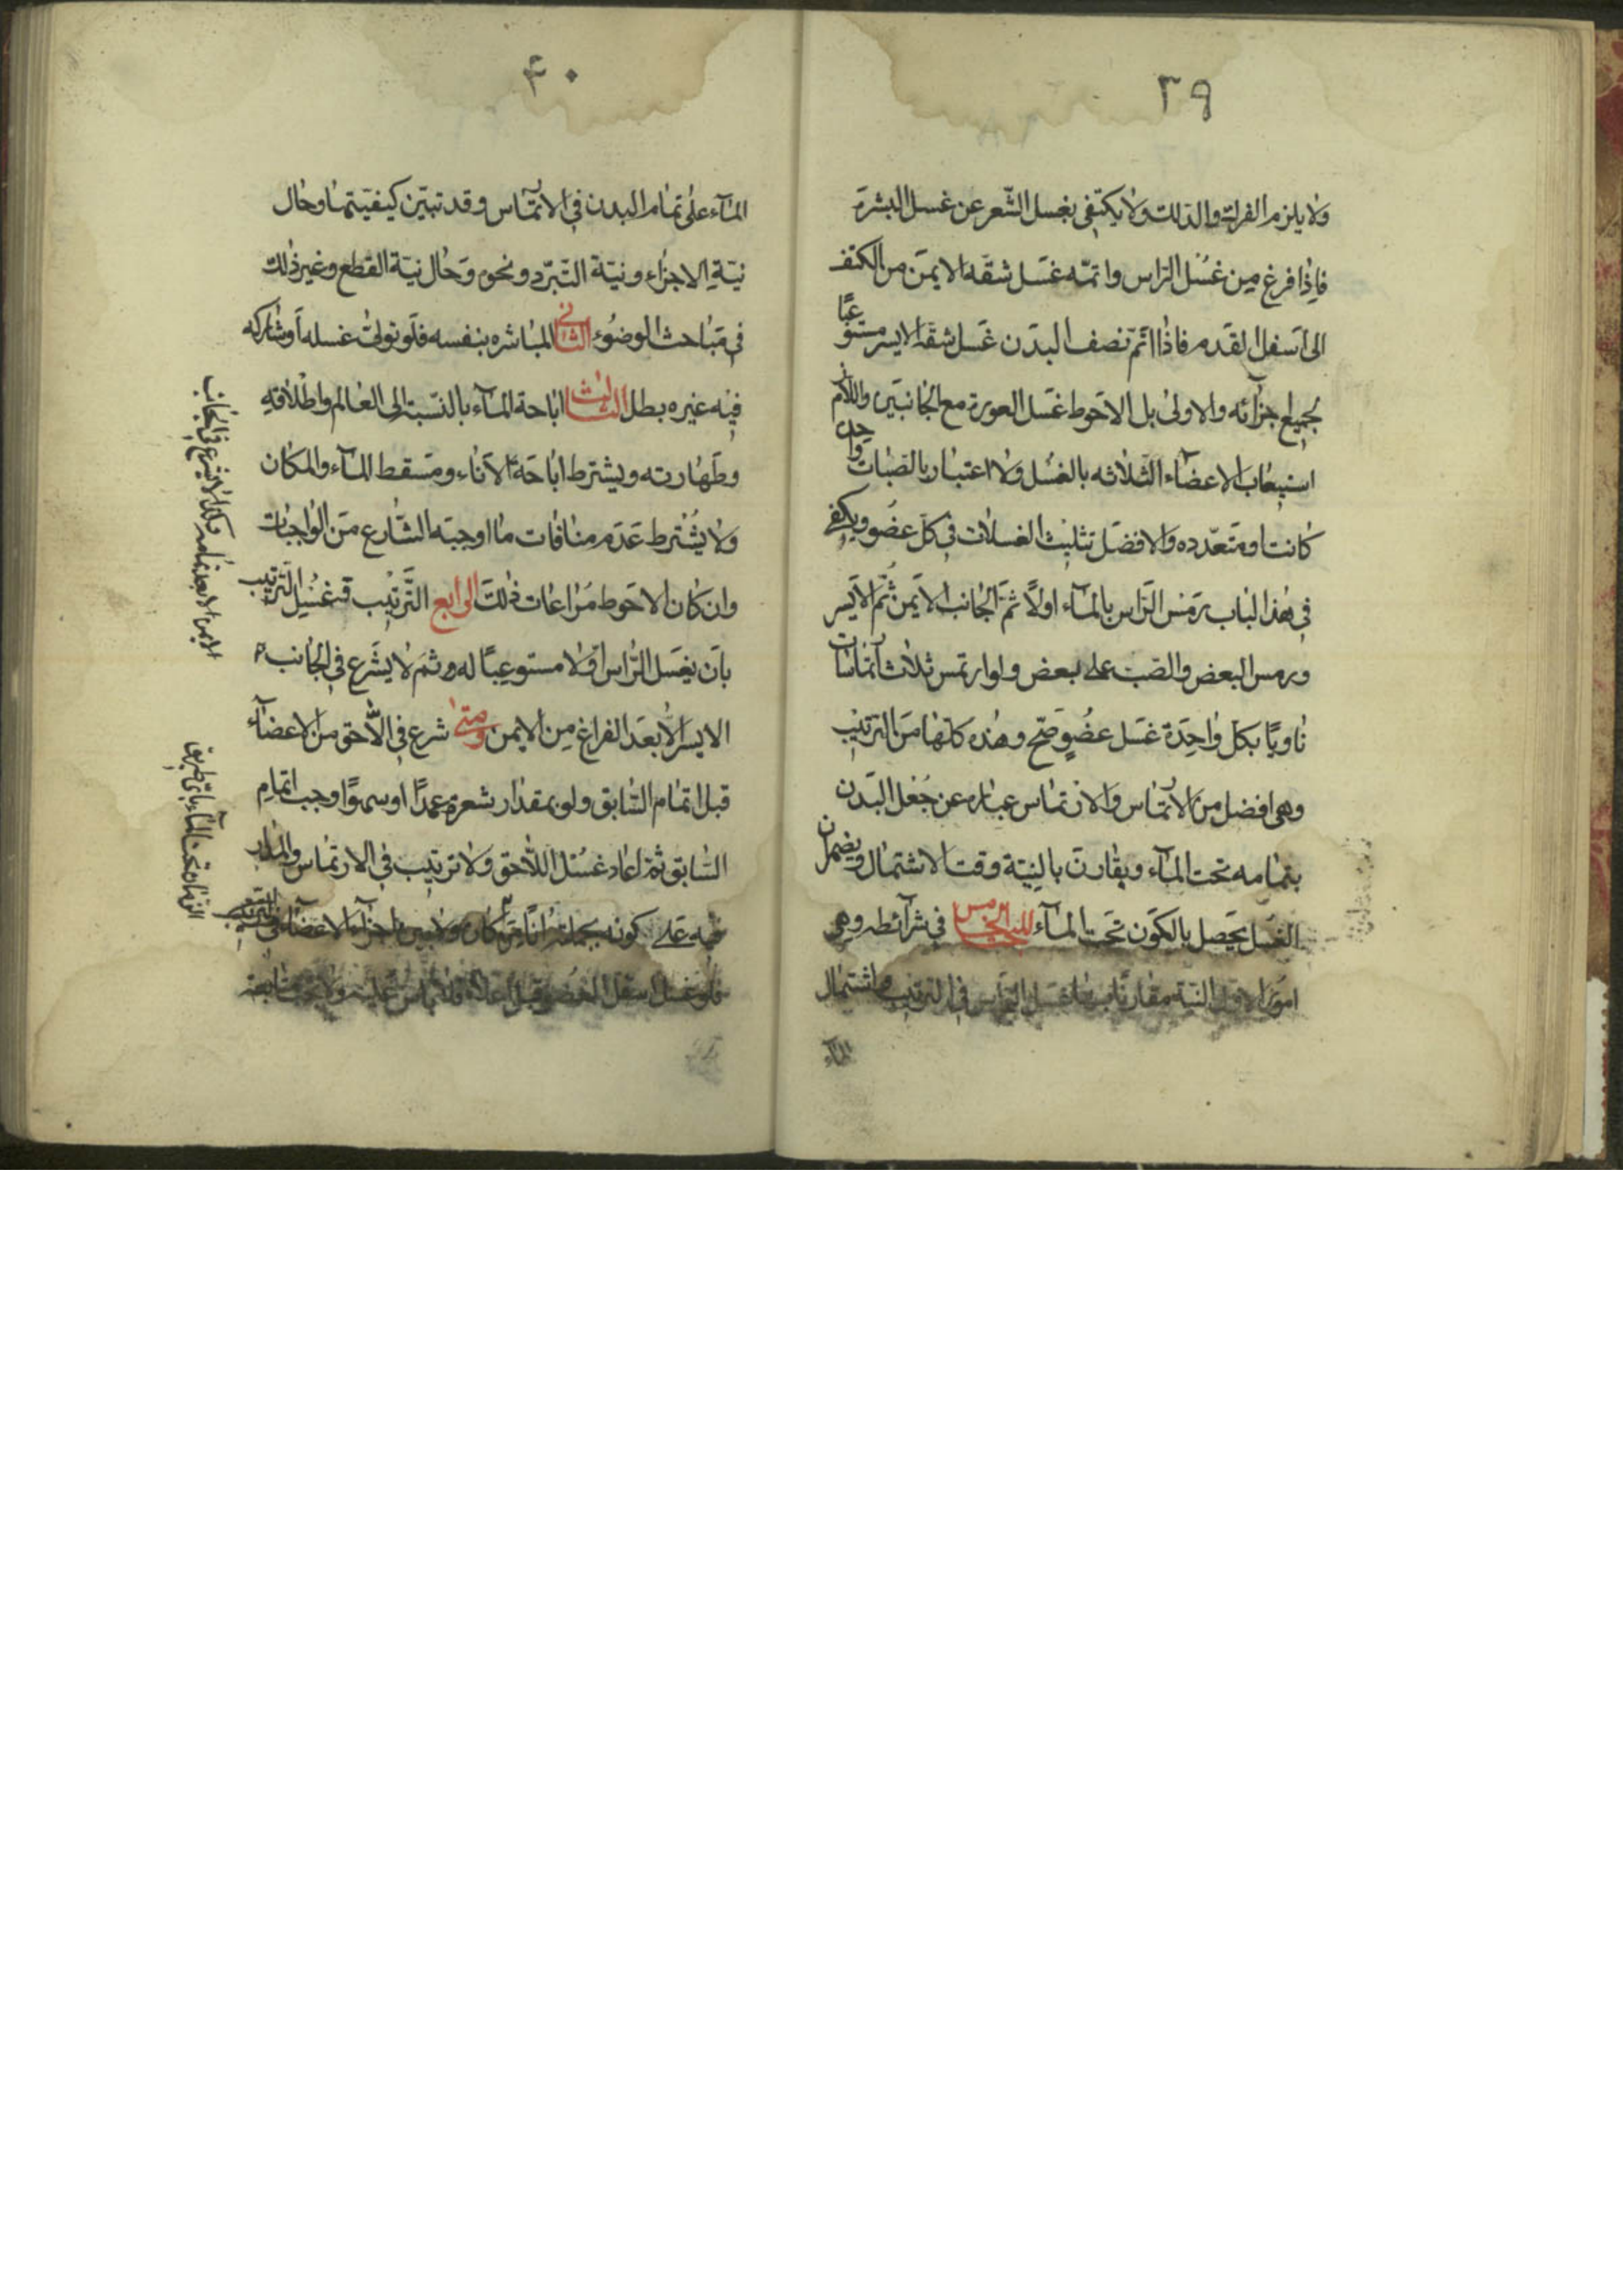 ٣٩
ولا يلزم الفرك والدلك ولا يكتفى بغسل الشعر عن غسل البشرة
فاذا فرغ من غسل الراس واتمه غسل شقه الايمن من الكتف
الى اسفل القدم فاذا اتم نصف البدن غسل شقه الايسر مستوعبًا
لجميع اجزآئه والاولى بل الاحوط غسل العورة مع الجانبين واللازم
استيعاب الاعضآء الثلاثه بالغسل ولا اعتبار بالصبات واحدة
كانت او متعدده والافضل تثليث الغسلات فى كل عضو ويكفى
فى هذا الباب رمس الراس بالمآء اولًا ثم الجانب الايمن ثم الايسر
ورمس البعض والصب على بعض ولو ارتمس ثلاث ارتماسات
ناويًا بكل واحدة غسل عضوٍ صح وهذه كلها من الترتيب
وهى افضل من الارتماس والارتماس عباره عن جعل البدن
بتمامه تحت المآء ويقارن بالنية وقت الاشتمال
الغسل يحصل بالكون تحت المآء المبحث الخامس فى شرآئطه وهى
امور الاول النية مقارنًا بها غسل الراس فى الترتيب واشتمال
المآء
٤٠
المآء على تمام البدن فى الارتماس وقد تبين كيفيتها وحال
نية الاجزاء ونية التبرد ونحوه وحال نية القطع وغير ذلك
فى مباحث الوضوء الثانى المباشره بنفسه فلو تولى غسله او شاركه
فيه غيره بطل الثالث اباحة المآء بالنسبة الى العالم واطلاقه
وطهارته ويشترط اباحة الاناء ومسقط المآء والمكان
ولا يشترط عدم منافات ما اوجبه الشارع من الواجبات
وان كان الاحوط مراعات ذلك الرابع الترتيب فى غسل الترتيب
بان يغسل الراس اولا مستوعبًا له و ثم لا يشرع فى الجانب
الايسر الا بعد الفراغ من الايمن ومتى شرع فى اللاحق من الاعضآء
قبل اتمام السابق ولو بمقدار شعرة عمدًا او سهوًا وجب اتمام
السابق ثم اعاد غسل اللاحق ولا ترتيب فى الارتماس والمدار
فيه على كونه بجملته ولا بين اجزآء الاعضآء فى الترتيب
فلو غسل اسفل العضو قبل اعلاه فلا باس عليه ولا يجب متابعة
وهكذا لا يشرع فى الجانب
الايمن الا بعد تمامه